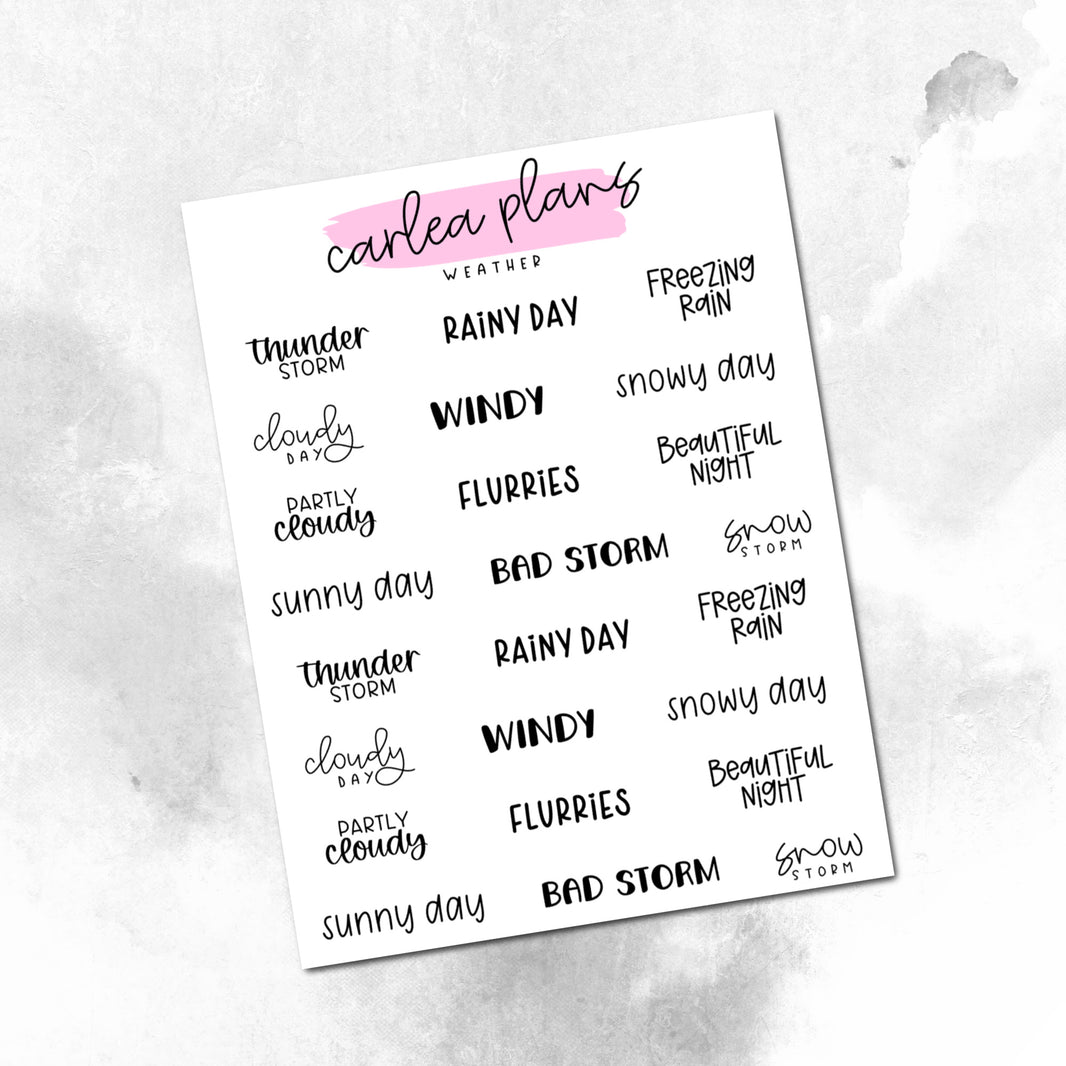 carlea plans
WEATHER
thunder
STORM
RAiNY DAY
FReeZiNg
RaiN
cloudy
DAY
WINDY
snowy day
PARTLY
cloudy
FLURRiES
BeauTiFuL
NigHT
sunny day
BAD STORM
snow
STORM
thunder
STORM
RAiNY DAY
FReeZiNg
RaiN
cloudy
DAY
WINDY
snowy day
PARTLY
cloudy
FLURRiES
BeauTiFuL
NigHT
sunny day
BAD STORM
snow
STORM